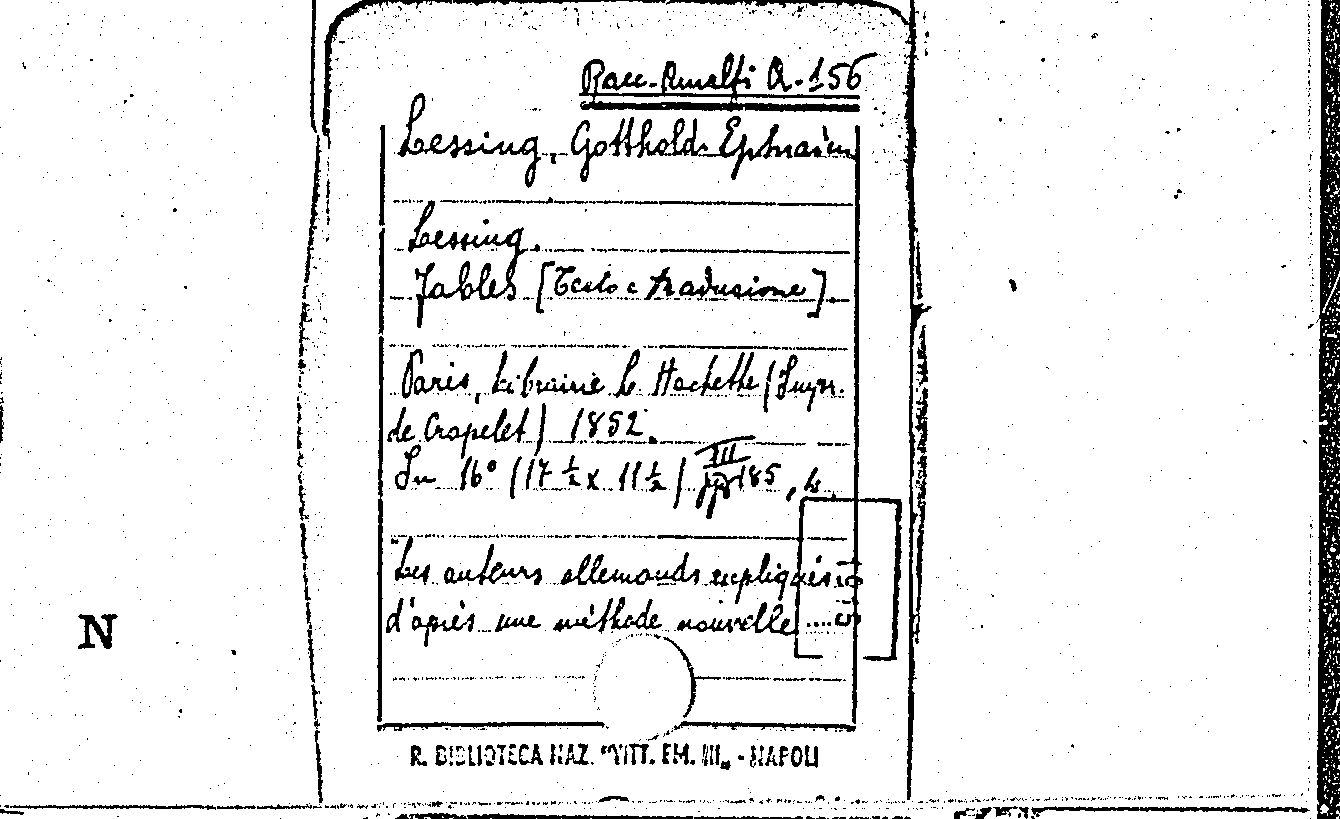 Racc. Amalfi A. 156
Lessing, Gotthold Ephraim
Lessing.
Fables [Testo e traduzione].
Paris, Librairie L. Hachette (Impr.
de Crapelet) 1852.
In 16° (17 ½ x 11 ½) pp. III 185,
Les auteurs allemands expliqués
d'après une méthode nouvelle ....
N
R. BIBLIOTECA NAZ. "VITT. EM. III„ - NAPOLI